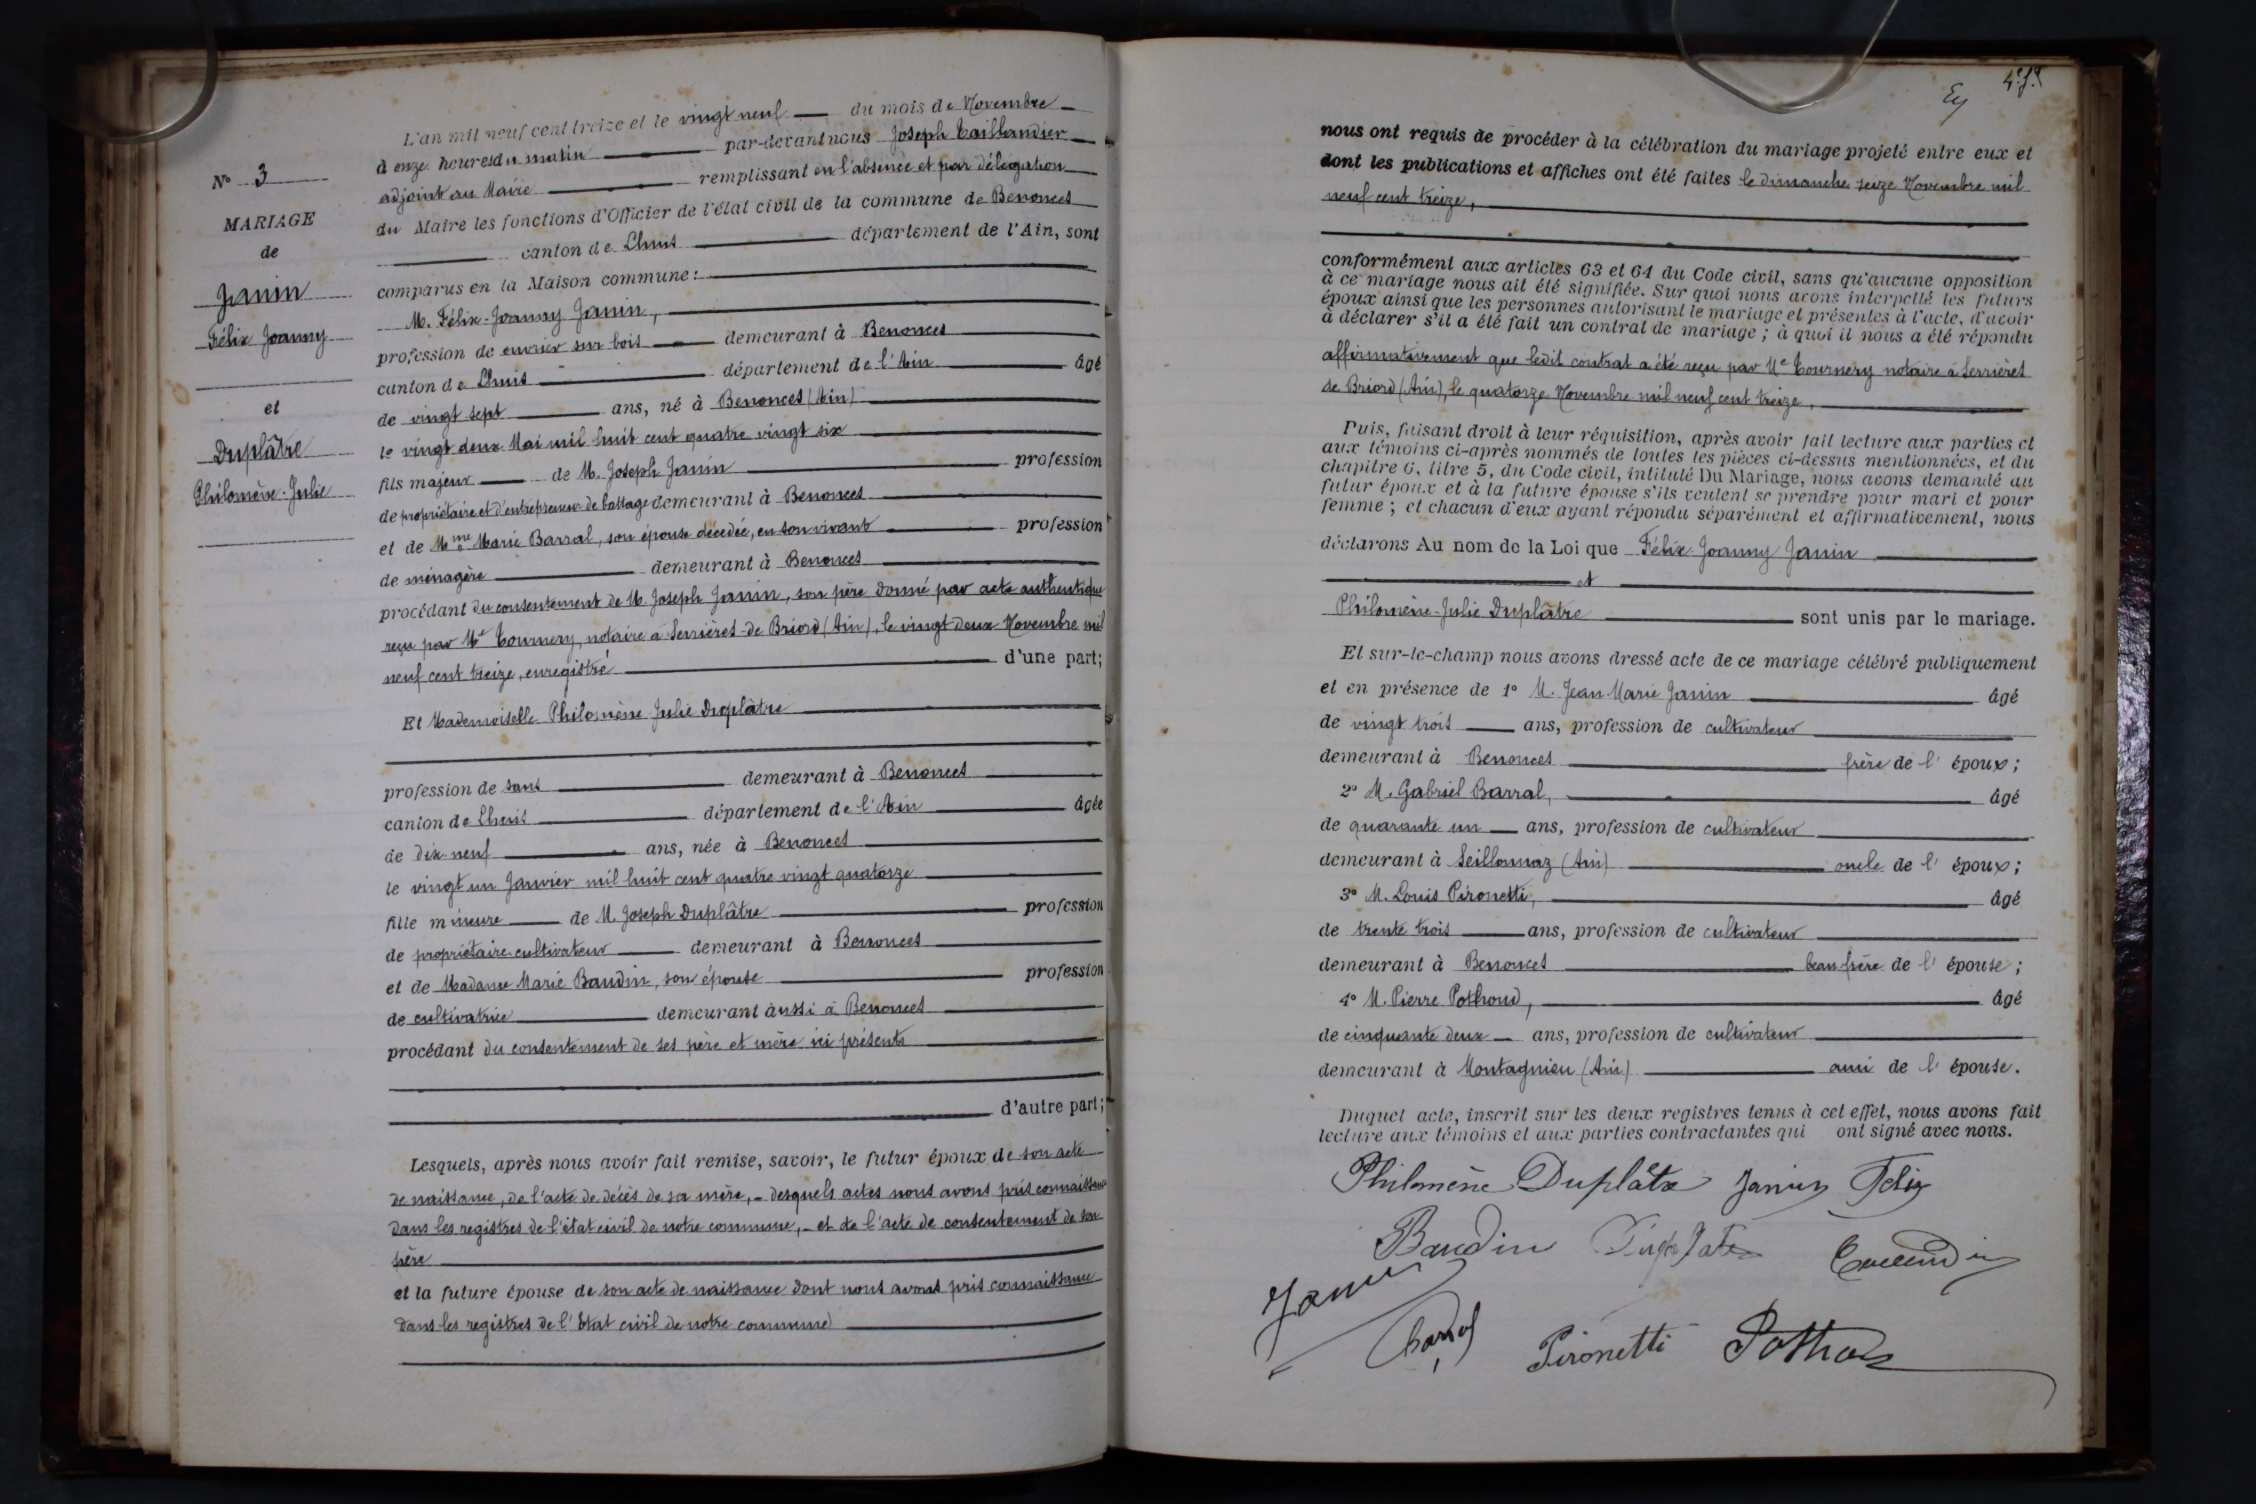 N° 3
MARIAGE
de
Janin
Félix Joanny
et
Duplâtre
Philomène-Julie
L'an mil neuf cent treize et le vingt neuf du mois de Novembre
à onze heures du matin par-devant nous Joseph Taillandier
adjoint au Maire remplissant en l'absence et par délégation
du Maire les fonctions d'Officier de l'état civil de la commune de Benonces
canton de Lhuis département de l'Ain, sont
comparus en la Maison commune :
M. Félix-Joanny Janin,
profession de ouvrier sur bois demeurant à Benonces
canton de Lhuis département de l'Ain âgé
de vingt sept ans, né à Benonces (Ain)
le vingt deux Mai mil huit cent quatre vingt six
fils majeur de M. Joseph Janin profession
de propriétaire et d'entrepreneur de battage demeurant à Benonces
et de Mme Marie Barral, son épouse décédée, en son vivant profession
de ménagère demeurant à Benonces
procédant du consentement de M. Joseph Janin, son père donné par acte authentique
reçu par Me Tournery, notaire à Serrières-de Briord (Ain), le vingt-deux Novembre mil
neuf cent treize, enregistré d'une part;
Et Mademoiselle Philomène Julie Duplâtre
profession de sans demeurant à Benonces
canton de Lhuis département de l'Ain âgée
de dix-neuf ans, née à Benonces
le vingt un Janvier mil huit cent quatre vingt quatorze
fille mineure de M. Joseph Duplâtre profession
de propriétaire-cultivateur demeurant à Benonces
et de Madame Marie Baudin, son épouse profession
de cultivatrice demeurant aussi à Benonces
procédant du consentement de ses père et mère ici présents
d'autre part;
Lesquels, après nous avoir fait remise, savoir, le futur époux de son acte
de naissance, de l'acte de décès de sa mère, - desquels actes nous avons pris connaissance
dans les registres de l'état civil de notre commune, - et de l'acte de consentement de son
père
et la future épouse de son acte de naissance dont nous avons pris connaissance
dans les registres de l'Etat civil de notre commune
nous ont requis de procéder à la célébration du mariage projeté entre eux et
dont les publications et affiches ont été faites le dimanche seize Novembre mil
neuf cent treize,
conformément aux articles 63 et 64 du Code civil, sans qu'aucune opposition
à ce mariage nous ait été signifiée. Sur quoi nous avons interpellé les futurs
époux ainsi que les personnes autorisant le mariage et présentes à l'acte, d'avoir
à déclarer s'il a été fait un contrat de mariage ; à quoi il nous a été répondu
affirmativement que ledit contrat a été reçu par Me Tournery notaire à Serrières
de Briord (Ain), le quatorze Novembre mil neuf cent treize,
Puis, faisant droit à leur réquisition, après avoir fait lecture aux parties et
aux témoins ci-après nommés de toutes les pièces ci-dessus mentionnées, et du
chapitre 6, titre 5, du Code civil, intitulé Du Mariage, nous avons demandé au
futur époux et à la future épouse s'ils veulent se prendre pour mari et pour
femme ; et chacun d'eux ayant répondu séparément et affirmativement, nous
déclarons Au nom de la Loi que Félix Joanny Janin
et
Philomène-Julie Duplâtre sont unis par le mariage.
Et sur-le-champ nous avons dressé acte de ce mariage célébré publiquement
et en présence de 1° M. Jean Marie Janin âgé
de vingt trois ans, profession de cultivateur
demeurant à Benonces frère de l' époux ;
2° M. Gabriel Barral, âgé
de quarante un ans, profession de cultivateur
demeurant à Seillonnaz (Ain) oncle de l' époux ;
3° M. Louis Pironetti, âgé
de trente trois ans, profession de cultivateur
demeurant à Benonces beau-frère de l' épouse ;
4° M. Pierre Pothoud, âgé
de cinquante deux ans, profession de cultivateur
demeurant à Montagnieu (Ain) ami de l' épouse.
Duquel acte, inscrit sur les deux registres tenus à cet effet, nous avons fait
lecture aux témoins et aux parties contractantes qui ont signé avec nous.
Philomène Duplâtre Janin Félix
Baudin Duplatre
Janin
Pironetti Pothoud